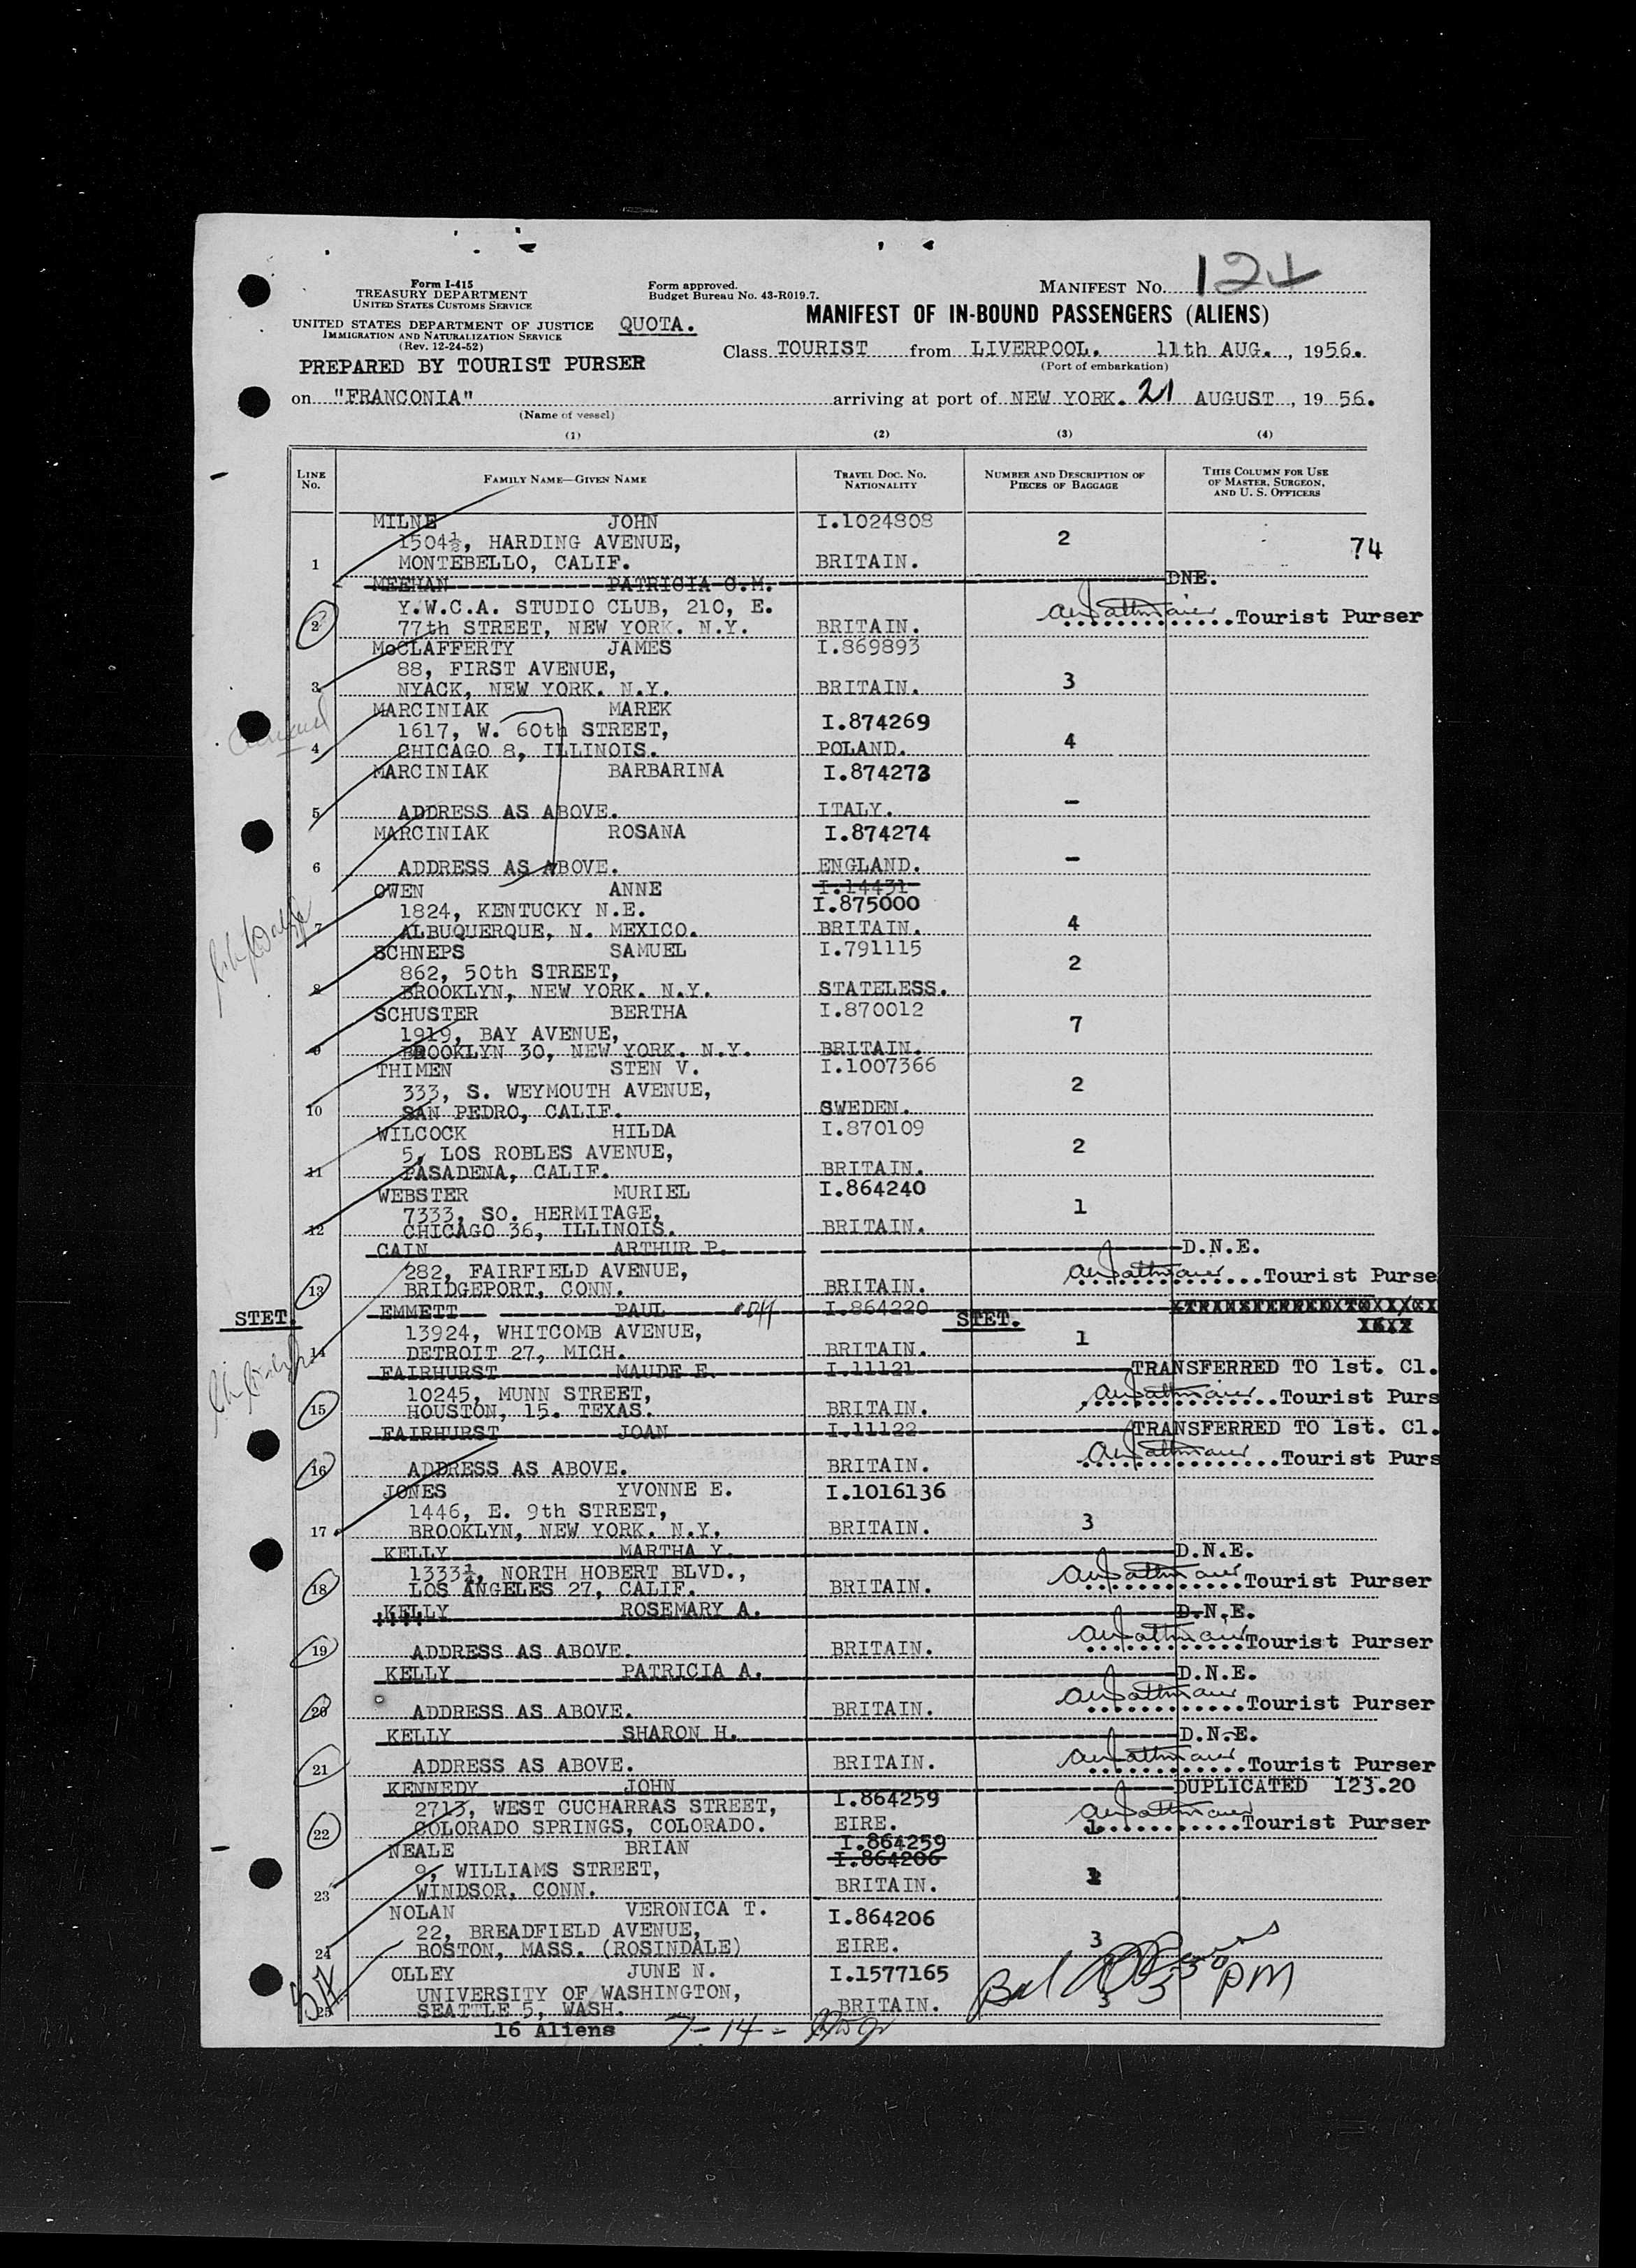 Form I-415
TREASURY DEPARTMENT
UNITED STATES CUSTOMS SERVICE
UNITED STATES DEPARTMENT OF JUSTICE
IMMIGRATION AND NATURALIZATION SERVICE
(Rev. 12-24-52)
PREPARED BY TOURIST PURSER
Form approved.
Budget Bureau No. 43-R019.7.
QUOTA.
MANIFEST NO. 124
MANIFEST OF IN-BOUND PASSENGERS (ALIENS)
Class TOURIST from LIVERPOOL. 11th AUG., 1956.
(Port of embarkation)
on "FRANCONIA" arriving at port of NEW YORK. 21 AUGUST, 19 56.
(Name of vessel)
(1) (2) (3) (4)
LINE NO. FAMILY NAME—GIVEN NAME TRAVEL DOC. NO. NATIONALITY NUMBER AND DESCRIPTION OF PIECES OF BAGGAGE THIS COLUMN FOR USE OF MASTER, SURGEON, AND U. S. OFFICERS
MILNE JOHN I.1024808
1504½, HARDING AVENUE, 2
1 MONTEBELLO, CALIF. BRITAIN. 74
MEEHAN PATRICIA C.M. DNE.
Y.W.C.A. STUDIO CLUB, 210, E. Tourist Purser
2 77th STREET, NEW YORK. N.Y. BRITAIN.
McCLAFFERTY JAMES I.869893
88, FIRST AVENUE,
3 NYACK, NEW YORK. N.Y. BRITAIN. 3
MARCINIAK MAREK I.874269
1617, W. 60th STREET,
4 CHICAGO 8, ILLINOIS. POLAND. 4
MARCINIAK BARBARINA I.874273
5 ADDRESS AS ABOVE. ITALY. -
MARCINIAK ROSANA I.874274
6 ADDRESS AS ABOVE. ENGLAND. -
OWEN ANNE I.14431
1824, KENTUCKY N.E. I.875000
7 ALBUQUERQUE, N. MEXICO. BRITAIN. 4
SCHNEPS SAMUEL I.791115
862, 50th STREET, 2
8 BROOKLYN, NEW YORK. N.Y. STATELESS.
SCHUSTER BERTHA I.870012
1919, BAY AVENUE, 7
9 BROOKLYN 30, NEW YORK. N.Y. BRITAIN.
THIMEN STEN V. I.1007366
333, S. WEYMOUTH AVENUE, 2
10 SAN PEDRO, CALIF. SWEDEN.
WILCOCK HILDA I.870109
5, LOS ROBLES AVENUE, 2
11 PASADENA, CALIF. BRITAIN.
WEBSTER MURIEL I.864240
7333, SO. HERMITAGE, 1
12 CHICAGO 36, ILLINOIS. BRITAIN.
CAIN ARTHUR P. D.N.E.
282, FAIRFIELD AVENUE, Tourist Purse
13 BRIDGEPORT, CONN. BRITAIN.
STET. EMMETT PAUL I.864220 STET.
13924, WHITCOMB AVENUE, 1
14 DETROIT 27, MICH. BRITAIN.
FAIRHURST MAUDE E. I.11121 TRANSFERRED TO 1st. Cl.
10245, MUNN STREET, Tourist Purs
15 HOUSTON, 15. TEXAS. BRITAIN.
FAIRHURST JOAN I.11122 TRANSFERRED TO 1st. Cl.
Tourist Purs
16 ADDRESS AS ABOVE. BRITAIN.
JONES YVONNE E. I.1016136
1446, E. 9th STREET,
17 BROOKLYN, NEW YORK. N.Y. BRITAIN. 3
KELLY MARTHA Y. D.N.E.
1333¼, NORTH HOBERT BLVD., Tourist Purser
18 LOS ANGELES 27, CALIF. BRITAIN.
KELLY ROSEMARY A. D.N.E.
Tourist Purser
19 ADDRESS AS ABOVE. BRITAIN.
KELLY PATRICIA A. D.N.E.
Tourist Purser
20 ADDRESS AS ABOVE. BRITAIN.
KELLY SHARON H. D.N.E.
21 ADDRESS AS ABOVE. BRITAIN. Tourist Purser
KENNEDY JOHN DUPLICATED 123.20
2713, WEST CUCHARRAS STREET, I.864259
22 COLORADO SPRINGS, COLORADO. EIRE. 1 Tourist Purser
NEALE BRIAN I.864259
9, WILLIAMS STREET, I.864206
23 WINDSOR, CONN. BRITAIN.
NOLAN VERONICA T. I.864206
22, BREADFIELD AVENUE,
24 BOSTON, MASS. (ROSINDALE) EIRE. 3
OLLEY JUNE N. I.1577165
UNIVERSITY OF WASHINGTON, PM
25 SEATTLE 5, WASH. BRITAIN. 3
16 Aliens 7-14-